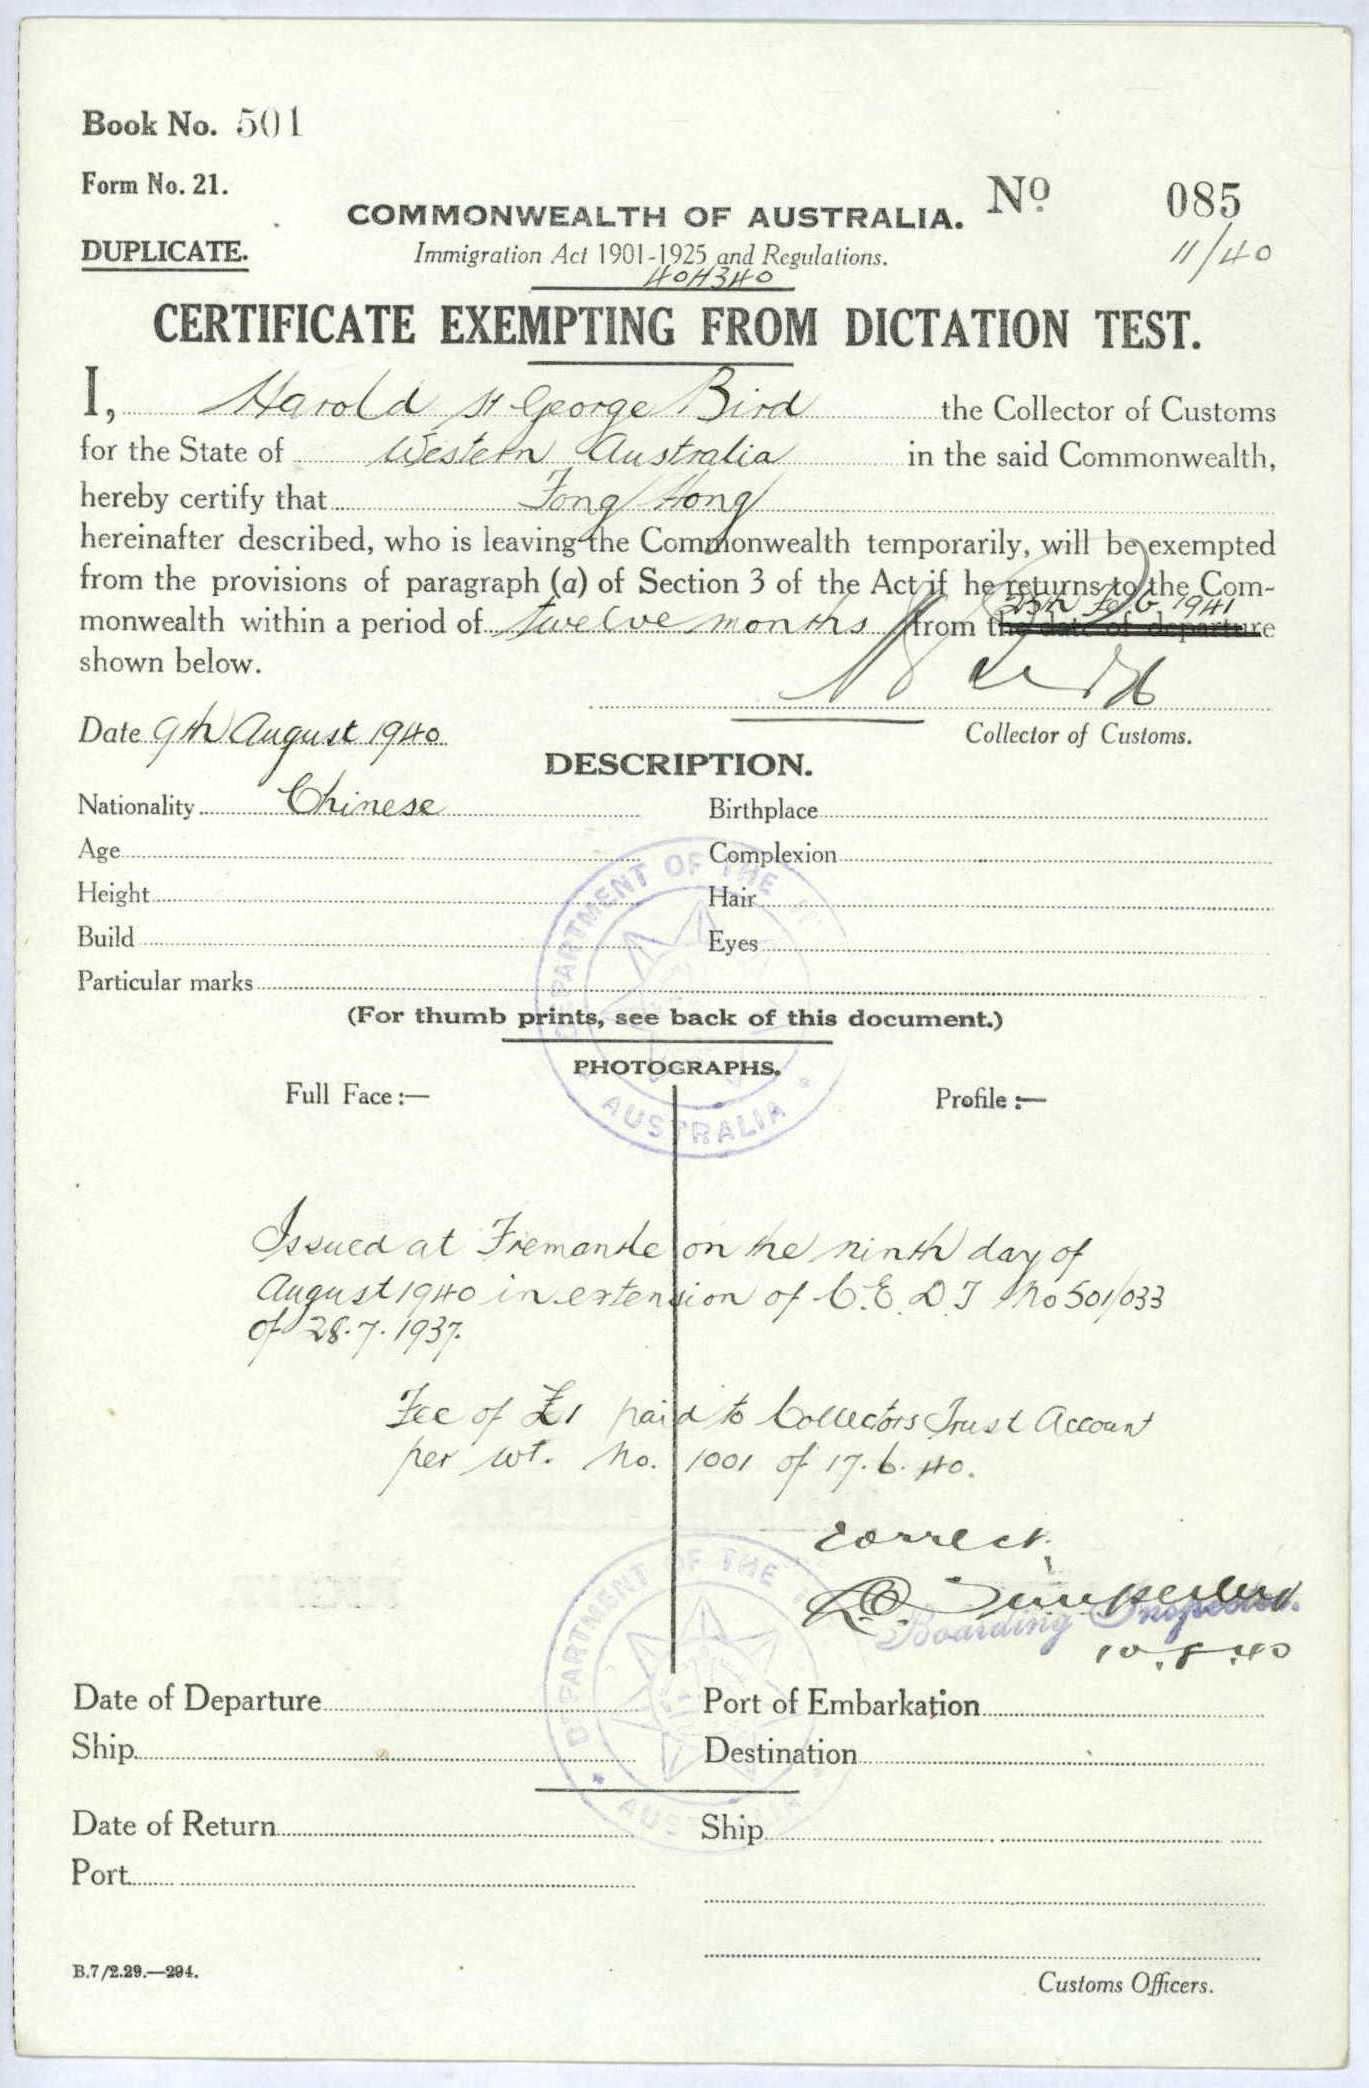 Book No. 501
Form No. 21.
DUPLICATE.
COMMONWEALTH OF AUSTRALIA.
Nº 085
11/40
Immigration Act 1901-1925 and Regulations.
404340
CERTIFICATE EXEMPTING FROM DICTATION TEST.
I, Harold St George Bird the Collector of Customs
for the State of Western Australia in the said Commonwealth,
hereby certify that Fong Hong
hereinafter described, who is leaving the Commonwealth temporarily, will be exempted
from the provisions of paragraph (a) of Section 3 of the Act if he returns to the Com-
25th Feb. 1941
monwealth within a period of twelve months from the date of departure
shown below.
Date 9th August 1940
Collector of Customs.
DESCRIPTION.
Nationality Chinese Birthplace
Age Complexion
Height Hair
Build Eyes
Particular marks
(For thumb prints, see back of this document.)
DEPARTMENT OF THE
AUSTRALIA
PHOTOGRAPHS.
Full Face :— Profile :—
Issued at Fremantle on the ninth day of
August 1940 in extension of C.E.D.T No 501/033
of 28.7.1937.
Fee of £1 paid to Collectors Trust Account
per wt. No. 1001 of 17.6.40.
Correct.
Boarding Inspector.
10.8.40
DEPARTMENT OF THE
AUSTRALIA
Date of Departure Port of Embarkation
Ship Destination
Date of Return Ship
Port
B.7/2.29.—294.
Customs Officers.